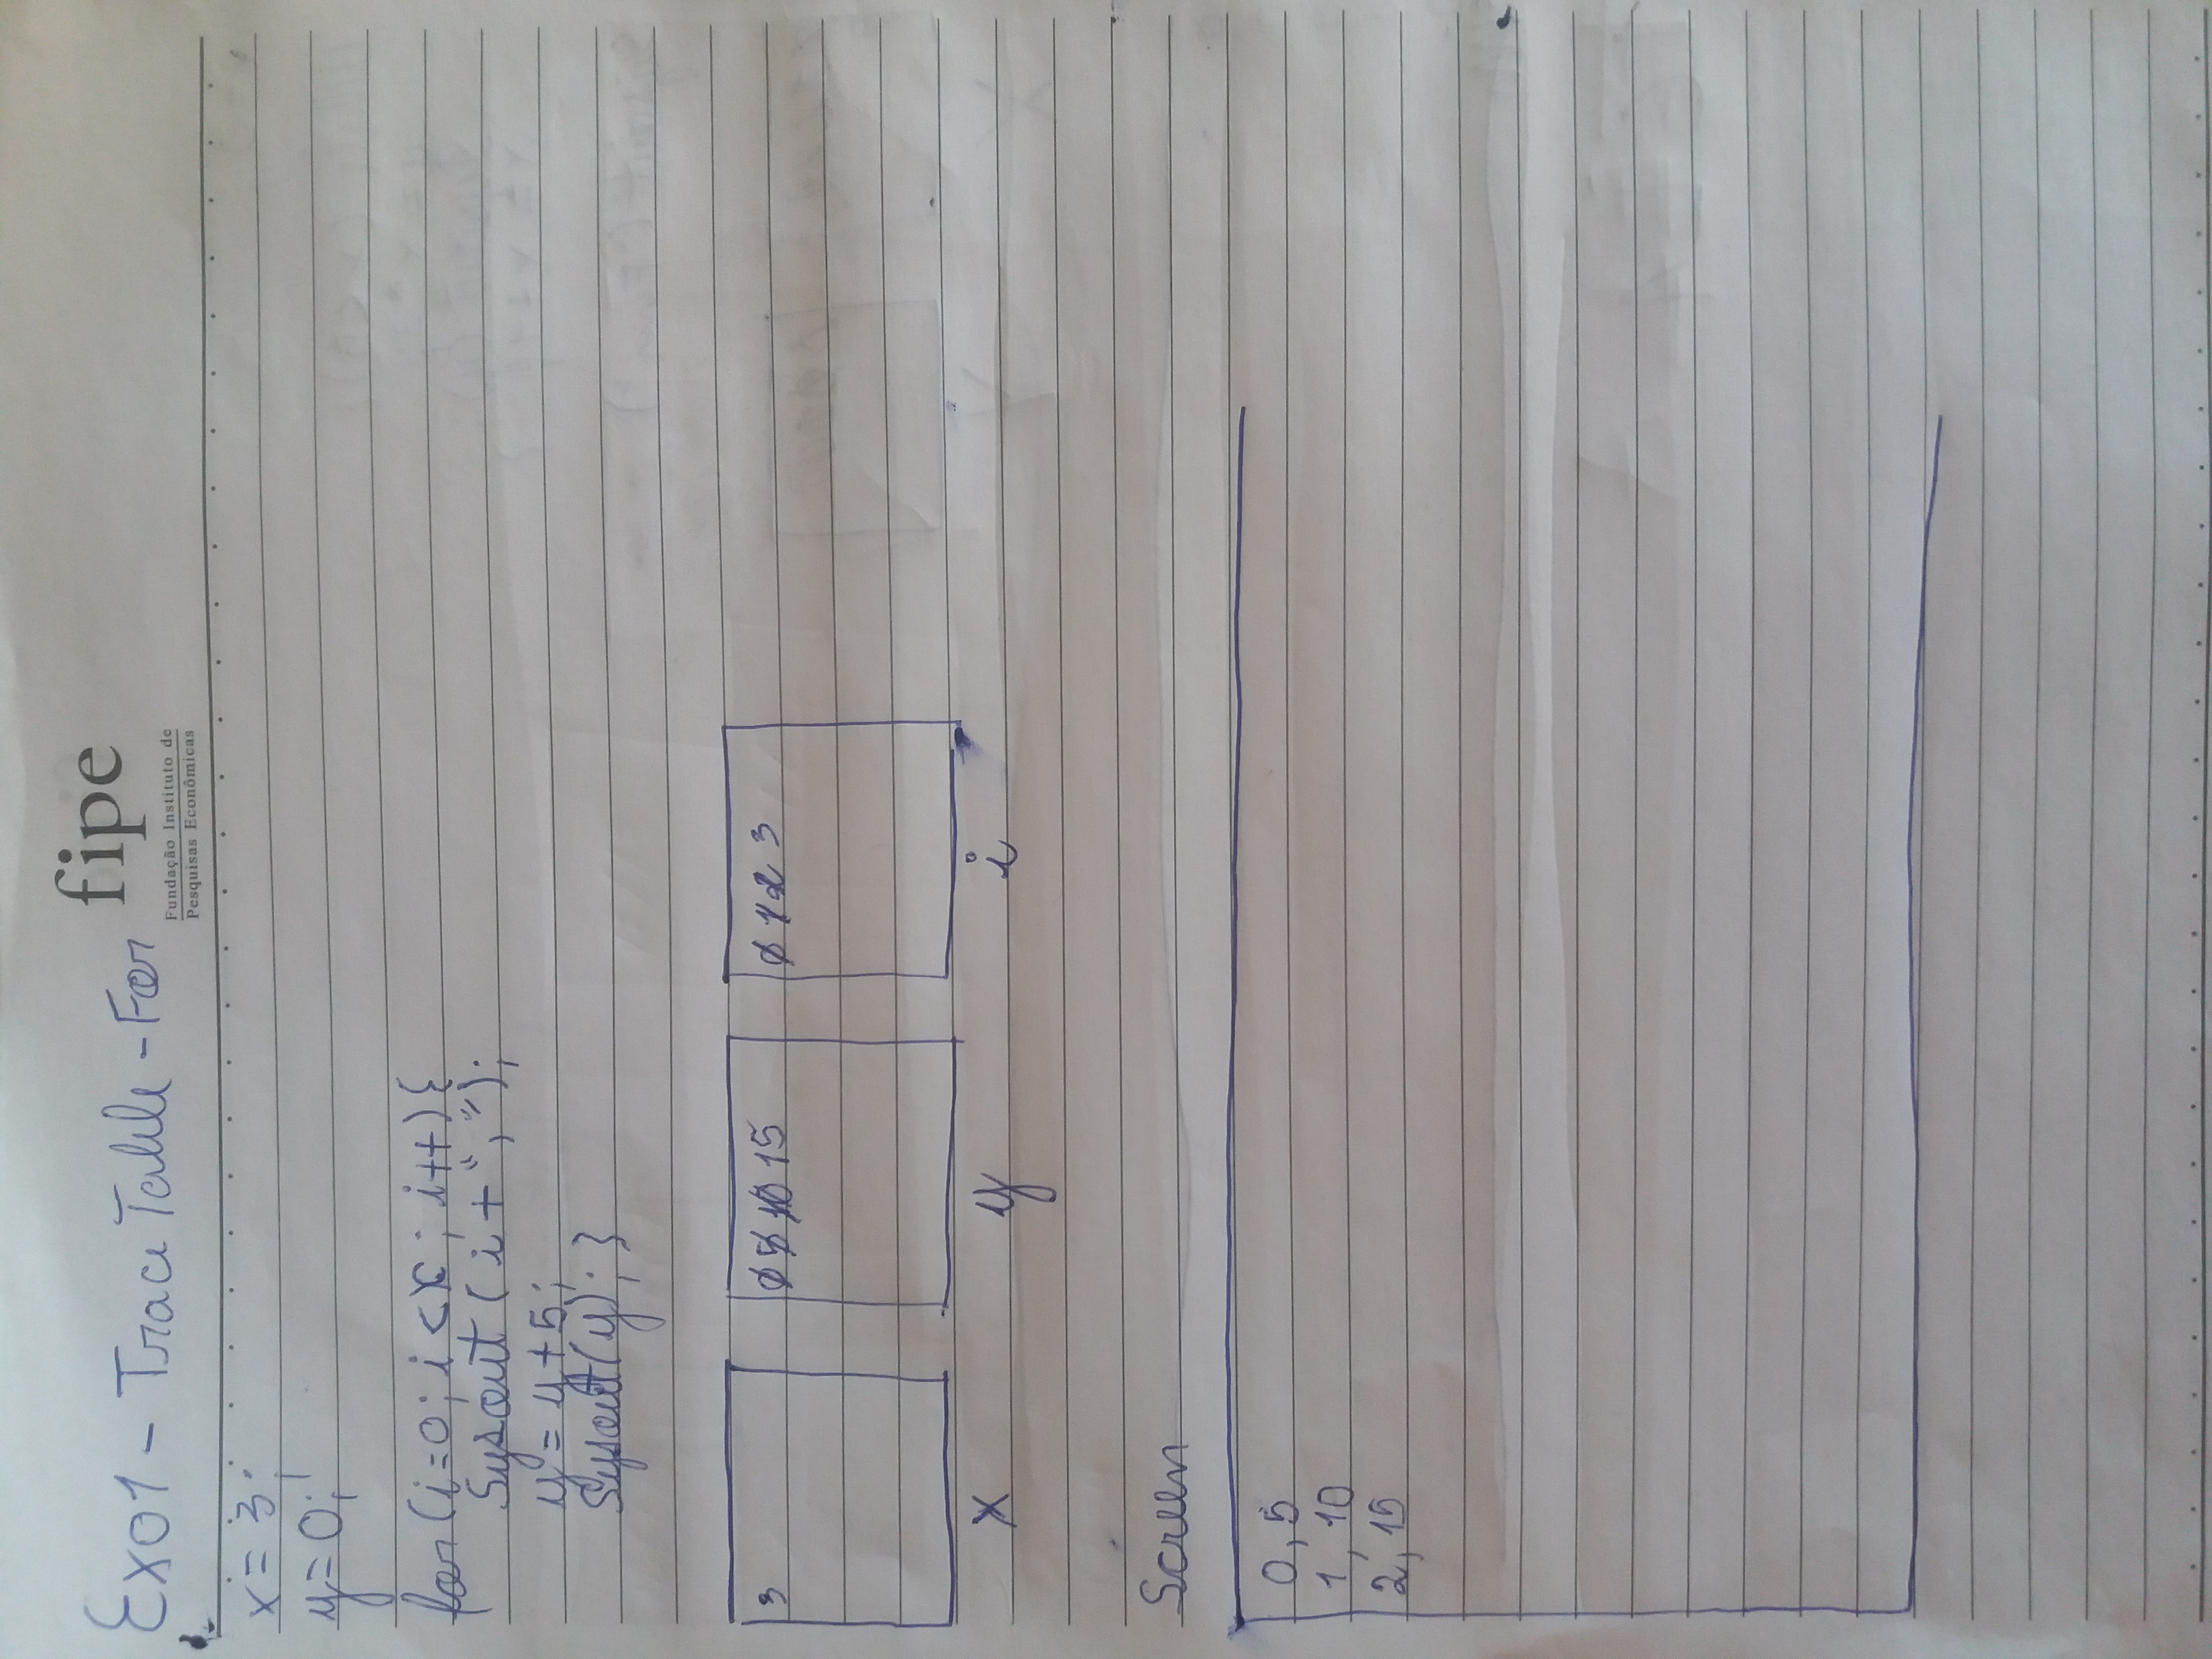 Ex01 - Trace Table - For
fipe
Fundação Instituto de
Pesquisas Econômicas
x = 3;
y = 0;
for (i=0; i < x; i++) {
Sysout ( i + ", ");
y = y + 5;
Sysout (y); }
3
0 5 10 15
0 1 2 3
x y i
Screen
0, 5
1, 10
2, 15